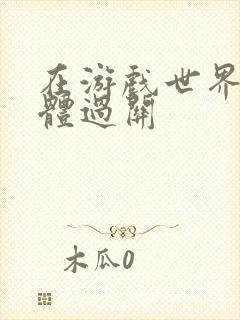 在游戏世界
體過關
木瓜0